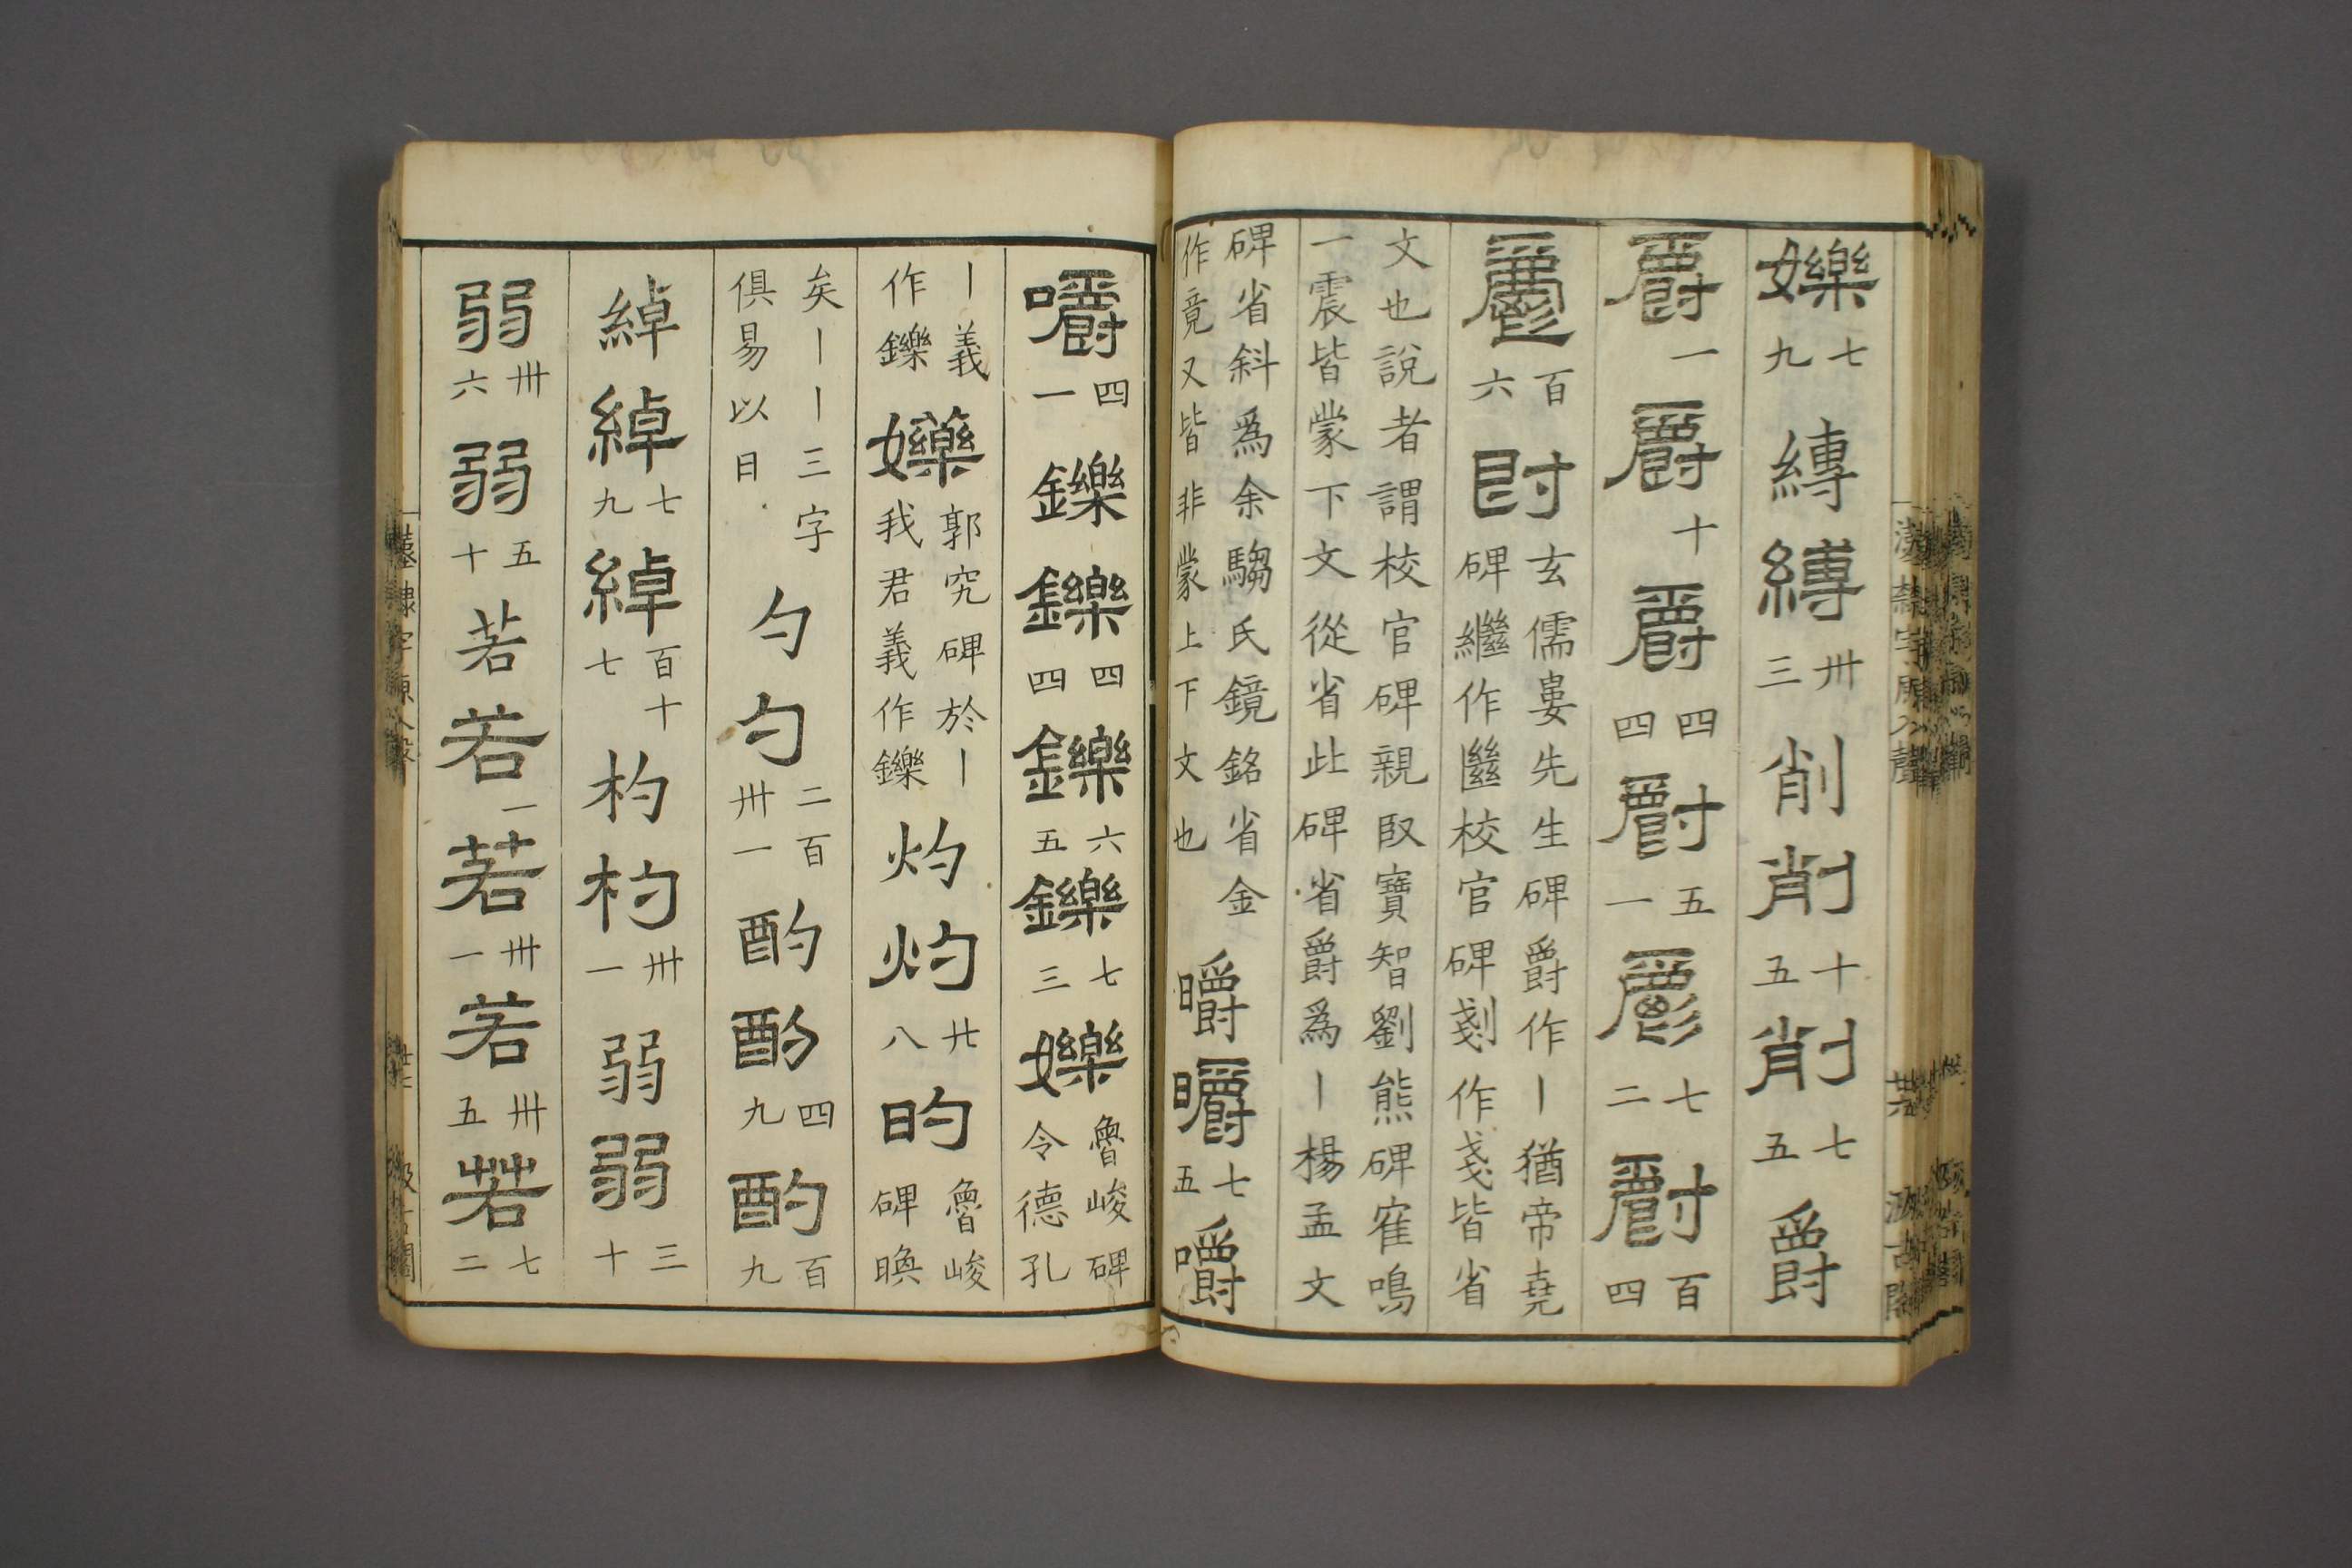 㜰七九縳縛卅三削削十五削七五爵
爵一爵十爵四四爵五一爵七二爵百四
爵百六㝵玄儒婁先生碑爵作丨猶帝堯
碑繼作㡭校官碑剗作戔皆省
文也說者謂校官碑親臤寶智劉熊碑寉鳴
一震皆蒙下文從省此碑省爵爲丨楊孟文
碑省斜爲余騶氏鏡銘省金
作竟又皆非蒙上下文也
㬭㬭七五嚼
漢隸字原入聲 汲古閣
嚼四一鑠鑠四四鑠六五鑠七三㜰魯峻碑
令德孔
丨義
作鑠
㜰郭究碑於丨
我君義作鑠
灼灼廿八昀魯峻
碑煥
矣丨丨三字
俱易以目
勺勺二百卅一酌酌四九酌百九
綽綽七九綽百十七杓杓卅一弱弱三十
弱卅六弱五十若若一若卅一若卅五若七二
漢隸字原入聲 汲古閣